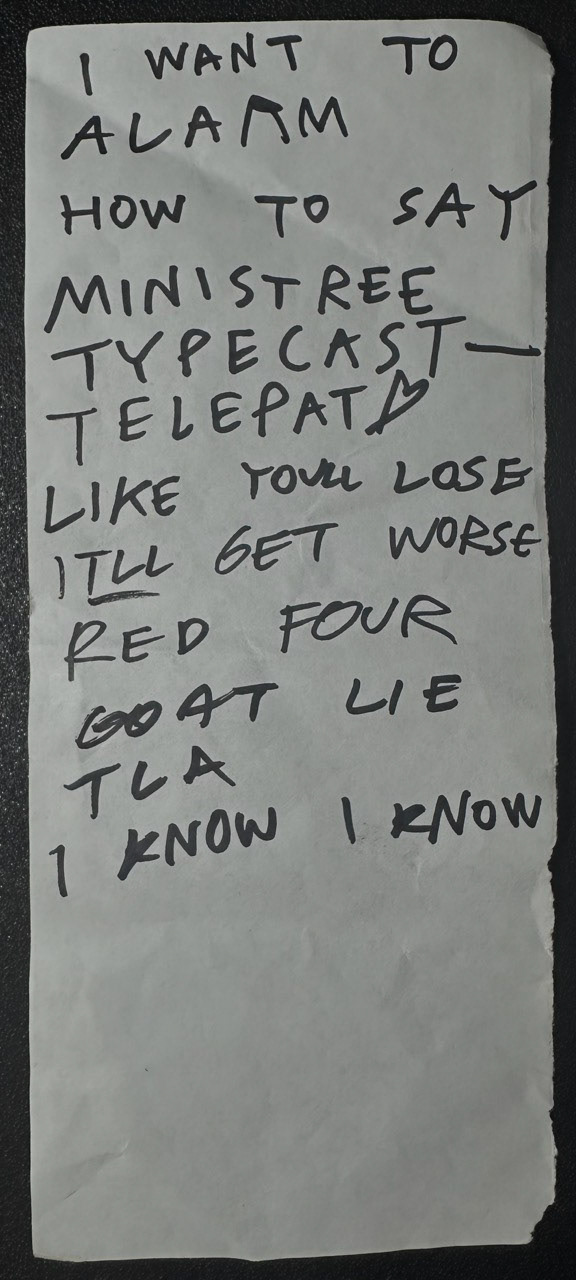 I WANT TO
ALARM
HOW TO SAY
MINISTREE
TYPECAST—
TELEPAT
LIKE YOULL LOSE
ITLL GET WORSE
RED FOUR
GOAT LIE
TLA
I KNOW I KNOW